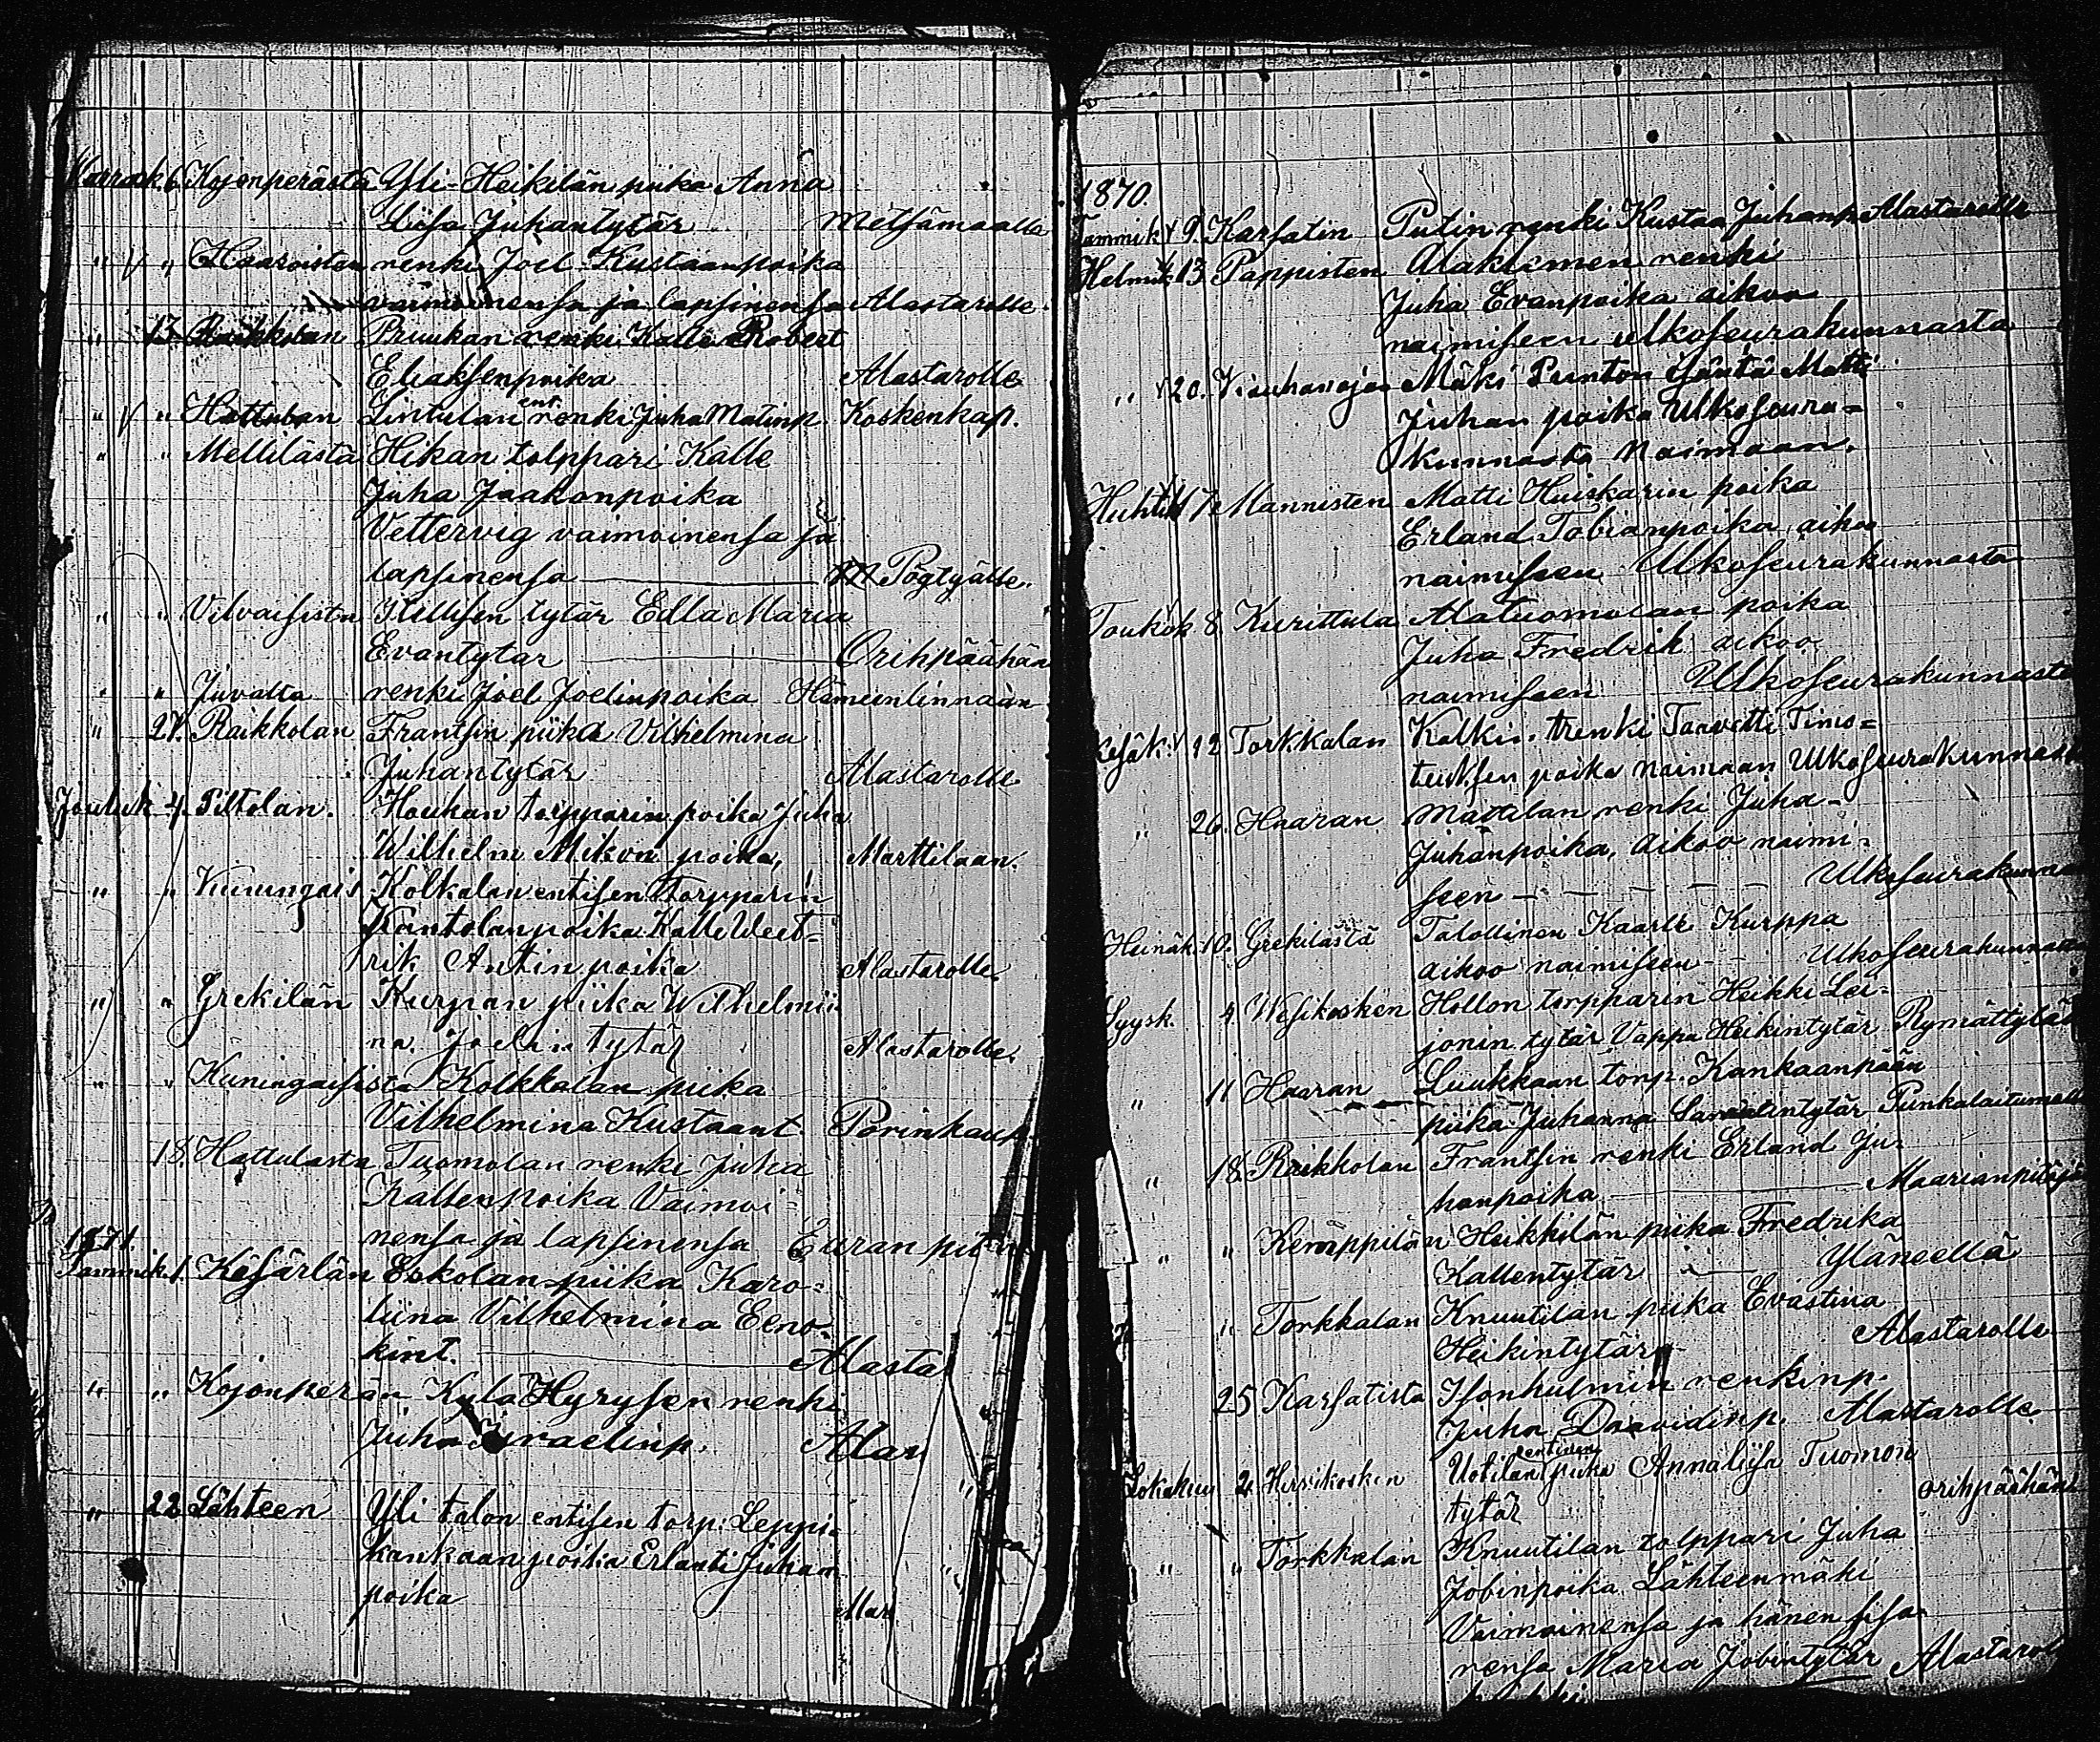 Marrask. 6. Kojonperästä Yli-Heikilän piika Anna
Liisa Juhantytär Metsämaalle
" " Haaroisten renki Joel Kustaanpoika
vaimoinensa ja lapsinensa Alastarolle.
" 13 Raikkolan Pruukan renki Kalle Robert
Eliaksenpoika Alastarolle
" " Hattulan Lintulan ent. renki Juha Matinp. Koskenkap.
" " Mellilästä Hikan tolppari Kalle
Juha Jaakonpoika
Vettervig vaimoinensa ja
lapsinensa — Pögtyälle.
" " Vilvaisista Itellisen tytär Edla Maria
Evantytär — Orihpäähän
" " Juvalta renki Joel Joelinpoika Hämeenlinnaan
" 27. Raikkolan Frantsin piika Vilhelmina
Juhantytär Alastarolle
Jouluk. 4. Piltolan. Houkan torpparin poika Juha
Wilhelm Mikon poika, Marttilaan.
" " Kuningais Kolkalan entisen torpparin
Kantolan poika Kalle Weet=
rik Antin poika Alastarolle
" " Grekilän Kurpan piika Wilhelmii
na Joelin tytär Alastarolle.
" " Kuningaisista Kolkkalan piika
Vilhelmina Kustaant. Porinkaup.
18. Hattulasta Tuomolan renki Juha
Kallenpoika Vaimoi=
nensa ja lapsinensa Euran pit
1871.
Tammik. 1. Käsärlän Eskolan piika Karo=
liina Vilhelmina Eeno
kint. — Alasta
" " Kojonperän Kylä Hyrysen renki
Juha Israelinp. Alas
" 22 Lähteen Yli talon entisen torp. Leppi=
kankaan poika Erlanti Juhan
poika Mar
1870.
Tammik. 9. Karsatin Putin renki Kustaa Juhanp. Alastarolle
Helmik. 13. Pappisten Alaklemen renki
Juha Evanpoika aikoo
naimiseen ulkoseurakunnasta
" 20. Mäki Punton Matti
Juhan poika Ulkoseura=
kunnasta Naimaan.
Huhtik. 17. Mannisten Matti Huiskarin poika
Erland Tobianpoika, aikoo
naimiseen Ulkoseurakunnasta
Toukok. 8. Kurittula Alatuomolan poika
Juha Fredrik aikoo
naimiseen Ulkoseurakunnasta
Kesäk. 12 Torkkalan Kalkin trenki Taavetti Timo=
teuksen poika naimaan Ulkoseurakunnast
" 26. Haaran Mattilan renki Juha-
Juhanpoika, aikoo naimi=
seen - - - - - Ulkoseurakunna
Heinäk. 10. Grekilästä Talollinen Kaarle Kurppa
aikoo naimiseen - Ulkoseurakunnasta
Syysk. 4. Wesikosken Hollon torpparin Heikki Lei=
jonin tytär Vappu Heikintytär Rymättylä
" 11 Haaran Luukkaan torp. Kankaanpään
piika Juhanna tytär Punkalaitumelle
" 18. Raikkolan Frantsin renki Erland Ju=
hanpoika — Maarianpitäjä
" " Kemppilän Heikkilän piika Fredrika
Kallentytär — Yläneellä
" Torkkalan Knuutilan piika Evastina
Heikintytär Alastarolle
25 Karsatista Isonhulmin renkinp.
Juha Daavidinp. Alastarolle
Lokakuu 2. Hirsikosken Uotilan entinen piika Annaliisa Tuomon
tytär orihpäähän
" " Torkkalan Knuutilan tolppari Juha
Jobinpoika Lähteenmäki
Vaimoinensa ja hänen sisa
rensa Maria Jobintytär Alastarol